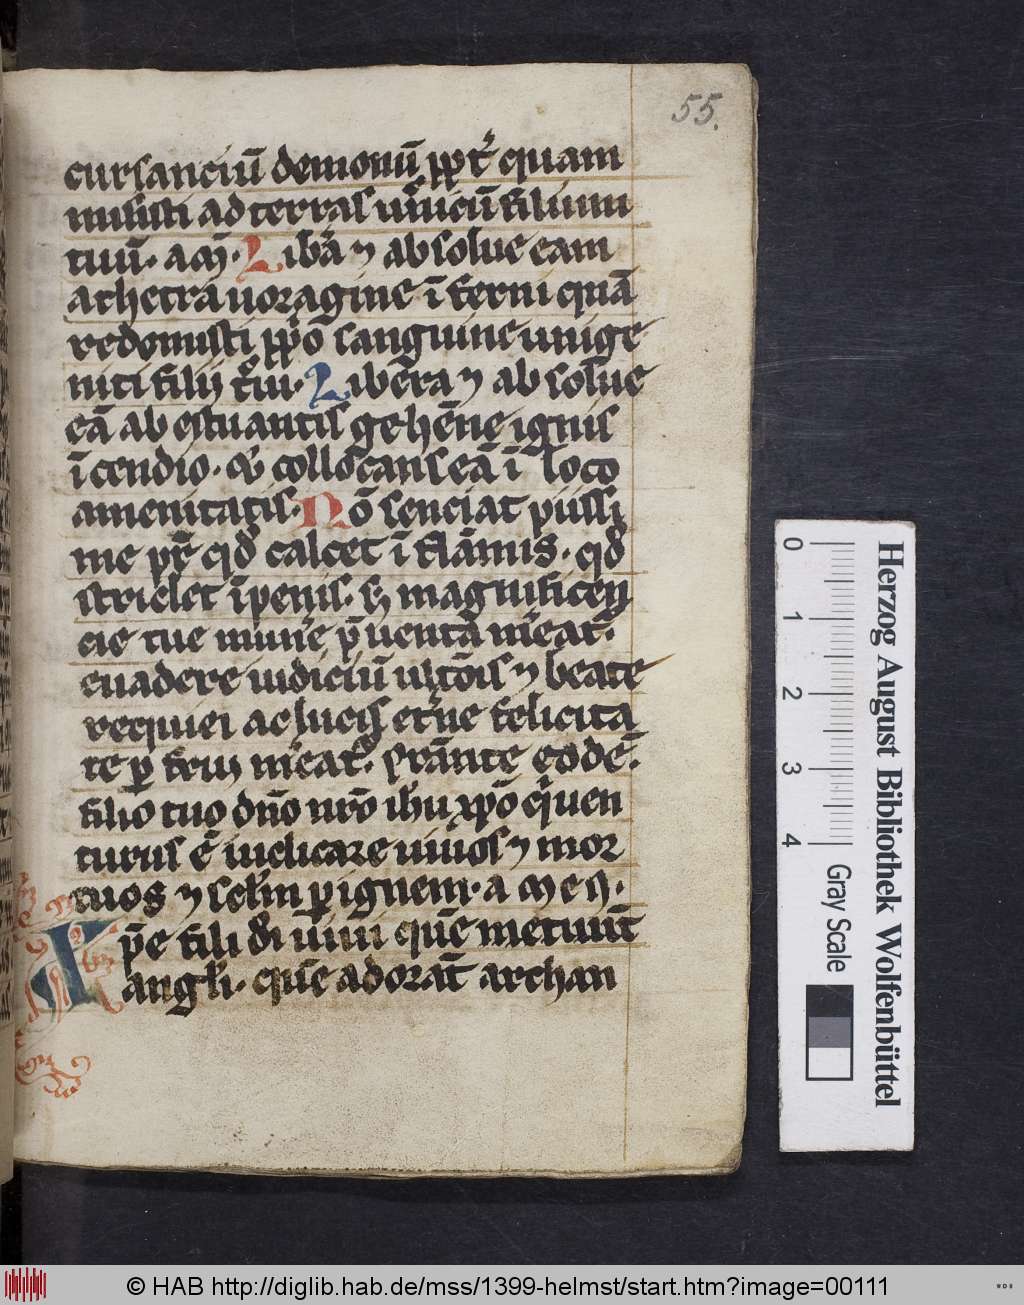 55.
cursanciū demonū ꝓpt̾ quam
misisti ad terras unicū filium
tuū. am̄. Libā ⁊ absolue eam
a thetra uoragine īferni quā
redemisti ꝓpo sanguine unige
niti filij tui. Libera ⁊ absolue
eā ab estuantis gehēne ignis
īcendio. collocans eā ī loco
amenitatis. Nō senciat piissi
me pr̄ qd̄ calcet ī flāmis. qd̄
stridet īpenis. magnificen
cie tue mun̄e p̄uenta m̄eat̾.
euadere iudiciū ultōis ⁊ beate
requiei ac lucis et̾ne felicita
te ꝑ frui m̄eat̾. p̄stante eodē.
filio tuo dn̄o nr̄o ihu xp̄o q̄ uen
turus ē iudicare uiuos ⁊ mor
tuos ⁊ sclm̄ ꝑ ignem. amen.
Xp̄e fili di uiui quē metuūt
angli. quē adorāt archan
0 1 2 3 4
Herzog August Bibliothek Wolfenbüttel
Gray Scale
© HAB http://diglib.hab.de/mss/1399-helmst/start.htm?image=00111